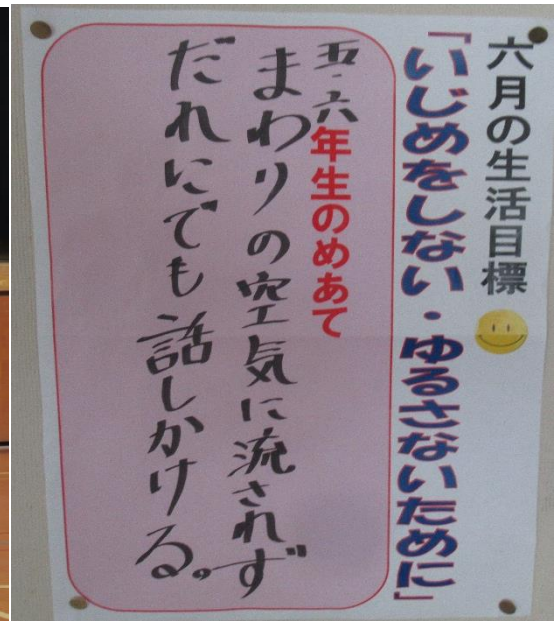 六月の生活目標
「いじめをしない・ゆるさないために」
五・六年生のめあて
まわりの空気に流されず
だれにでも話しかける。